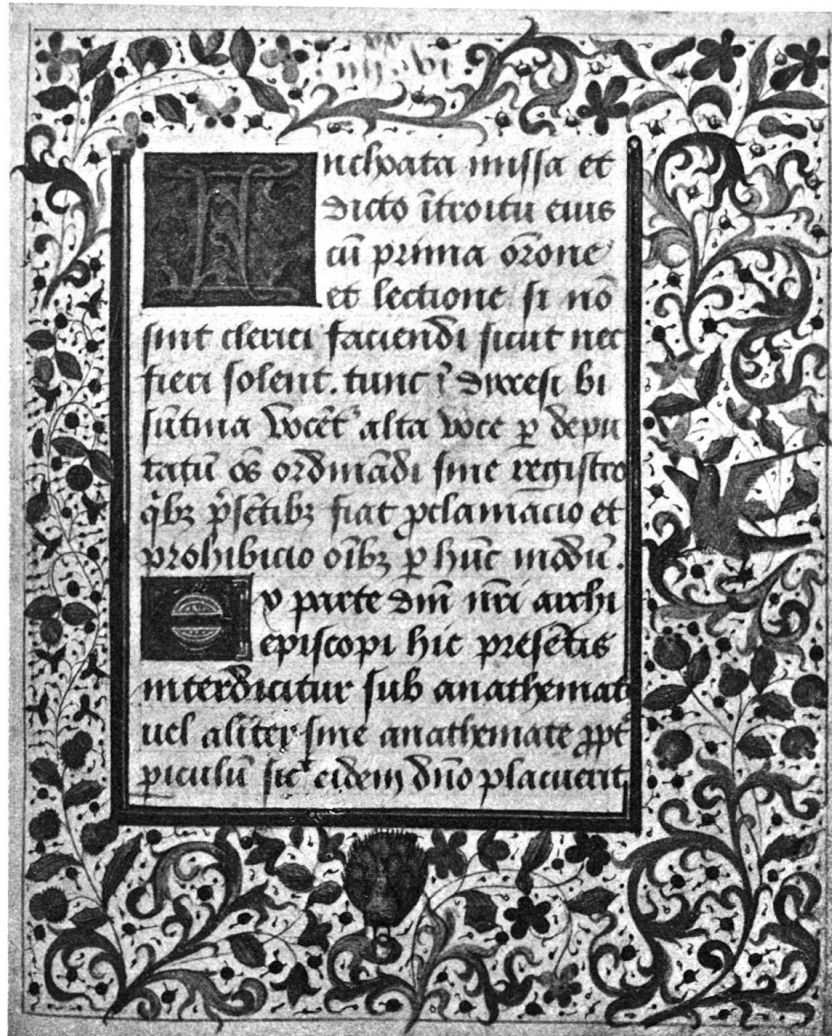 Inchoata missa et
dicto ĩtroitu eius
cũ prima or̃one
et lectione si nõ
sint clerici faciendi sicut nec
fieri solent. tunc ĩ diocesi bi
sũtina vocẽt᷒ alta voce ꝑ depu
tatũ oẽs ordinãdi sine registro
q̃bꝫ p̃sẽtibꝫ fiat ꝓclamacio et
prohibicio oĩbꝫ ꝑ hũc modũ.
Ex parte dñi nr̃i archi
episcopi hic presẽtis
interdicitur sub anathemat
uel aliter sine anathemate ꝓpt᷒
ꝑiculũ sic᷒ eidem dño placuerit